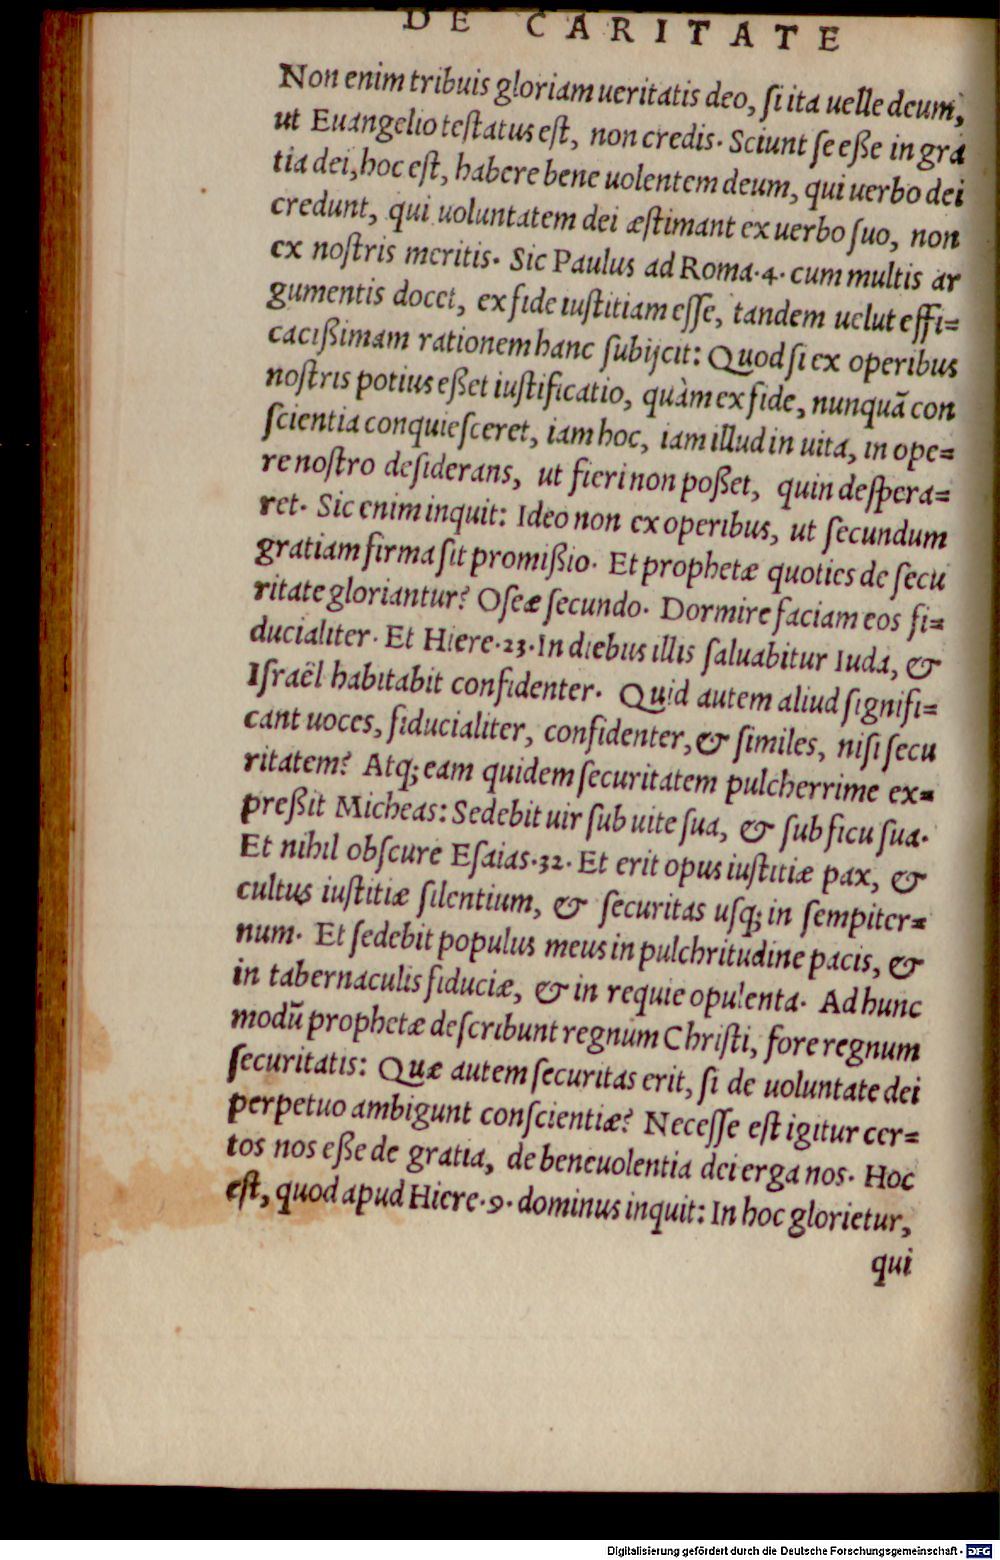 DE CARITATE
Non enim tribuis gloriam ueritatis deo, ſi ita uelle deum,
ut Euangelio teſtatus eſt, non credis. Sciunt ſe eße in gra
tia dei, hoc eſt, habere bene uolentem deum, qui uerbo dei
credunt, qui uoluntatem dei æſtimant ex uerbo ſuo, non
ex noſtris meritis. Sic Paulus ad Roma.4. cum multis ar
gumentis docet, ex fide iuſtitiam eſſe, tandem uelut effi=
cacißimam rationem hanc ſubijcit: Quod ſi ex operibus
noſtris potius eßet iuſtificatio, quàm ex fide, nunquã con
ſcientia conquieſceret, iam hoc, iam illud in uita, in ope=
re noſtro deſiderans, ut fieri non poßet, quin deſpera=
ret. Sic enim inquit: Ideo non ex operibus, ut ſecundum
gratiam firma ſit promißio. Et prophetæ quoties de ſecu
ritate gloriantur? Oſeæ ſecundo. Dormire faciam eos fi=
ducialiter. Et Hiere.23. In diebus illis ſaluabitur Iuda, &
Iſraël habitabit confidenter. Quid autem aliud ſignifi=
cant uoces, fiducialiter, confidenter, & ſimiles, niſi ſecu
ritatem? Atq; eam quidem ſecuritatem pulcherrime ex=
preßit Micheas: Sedebit uir ſub uite ſua, & ſub ficu ſua.
Et nihil obſcure Eſaias.32. Et erit opus iuſtitiæ pax, &
cultus iuſtitiæ ſilentium, & ſecuritas uſq; in ſempiter=
num. Et ſedebit populus meus in pulchritudine pacis, &
in tabernaculis fiduciæ, & in requie opulenta. Ad hunc
modũ prophetæ deſcribunt regnum Chriſti, fore regnum
ſecuritatis: Quæ autem ſecuritas erit, ſi de uoluntate dei
perpetuo ambigunt conſcientiæ? Neceſſe eſt igitur cer=
tos nos eße de gratia, de beneuolentia dei erga nos. Hoc
eſt, quod apud Hiere.9. dominus inquit: In hoc glorietur,
qui
Digitalisierung gefördert durch die Deutsche Forschungsgemeinschaft - DFG